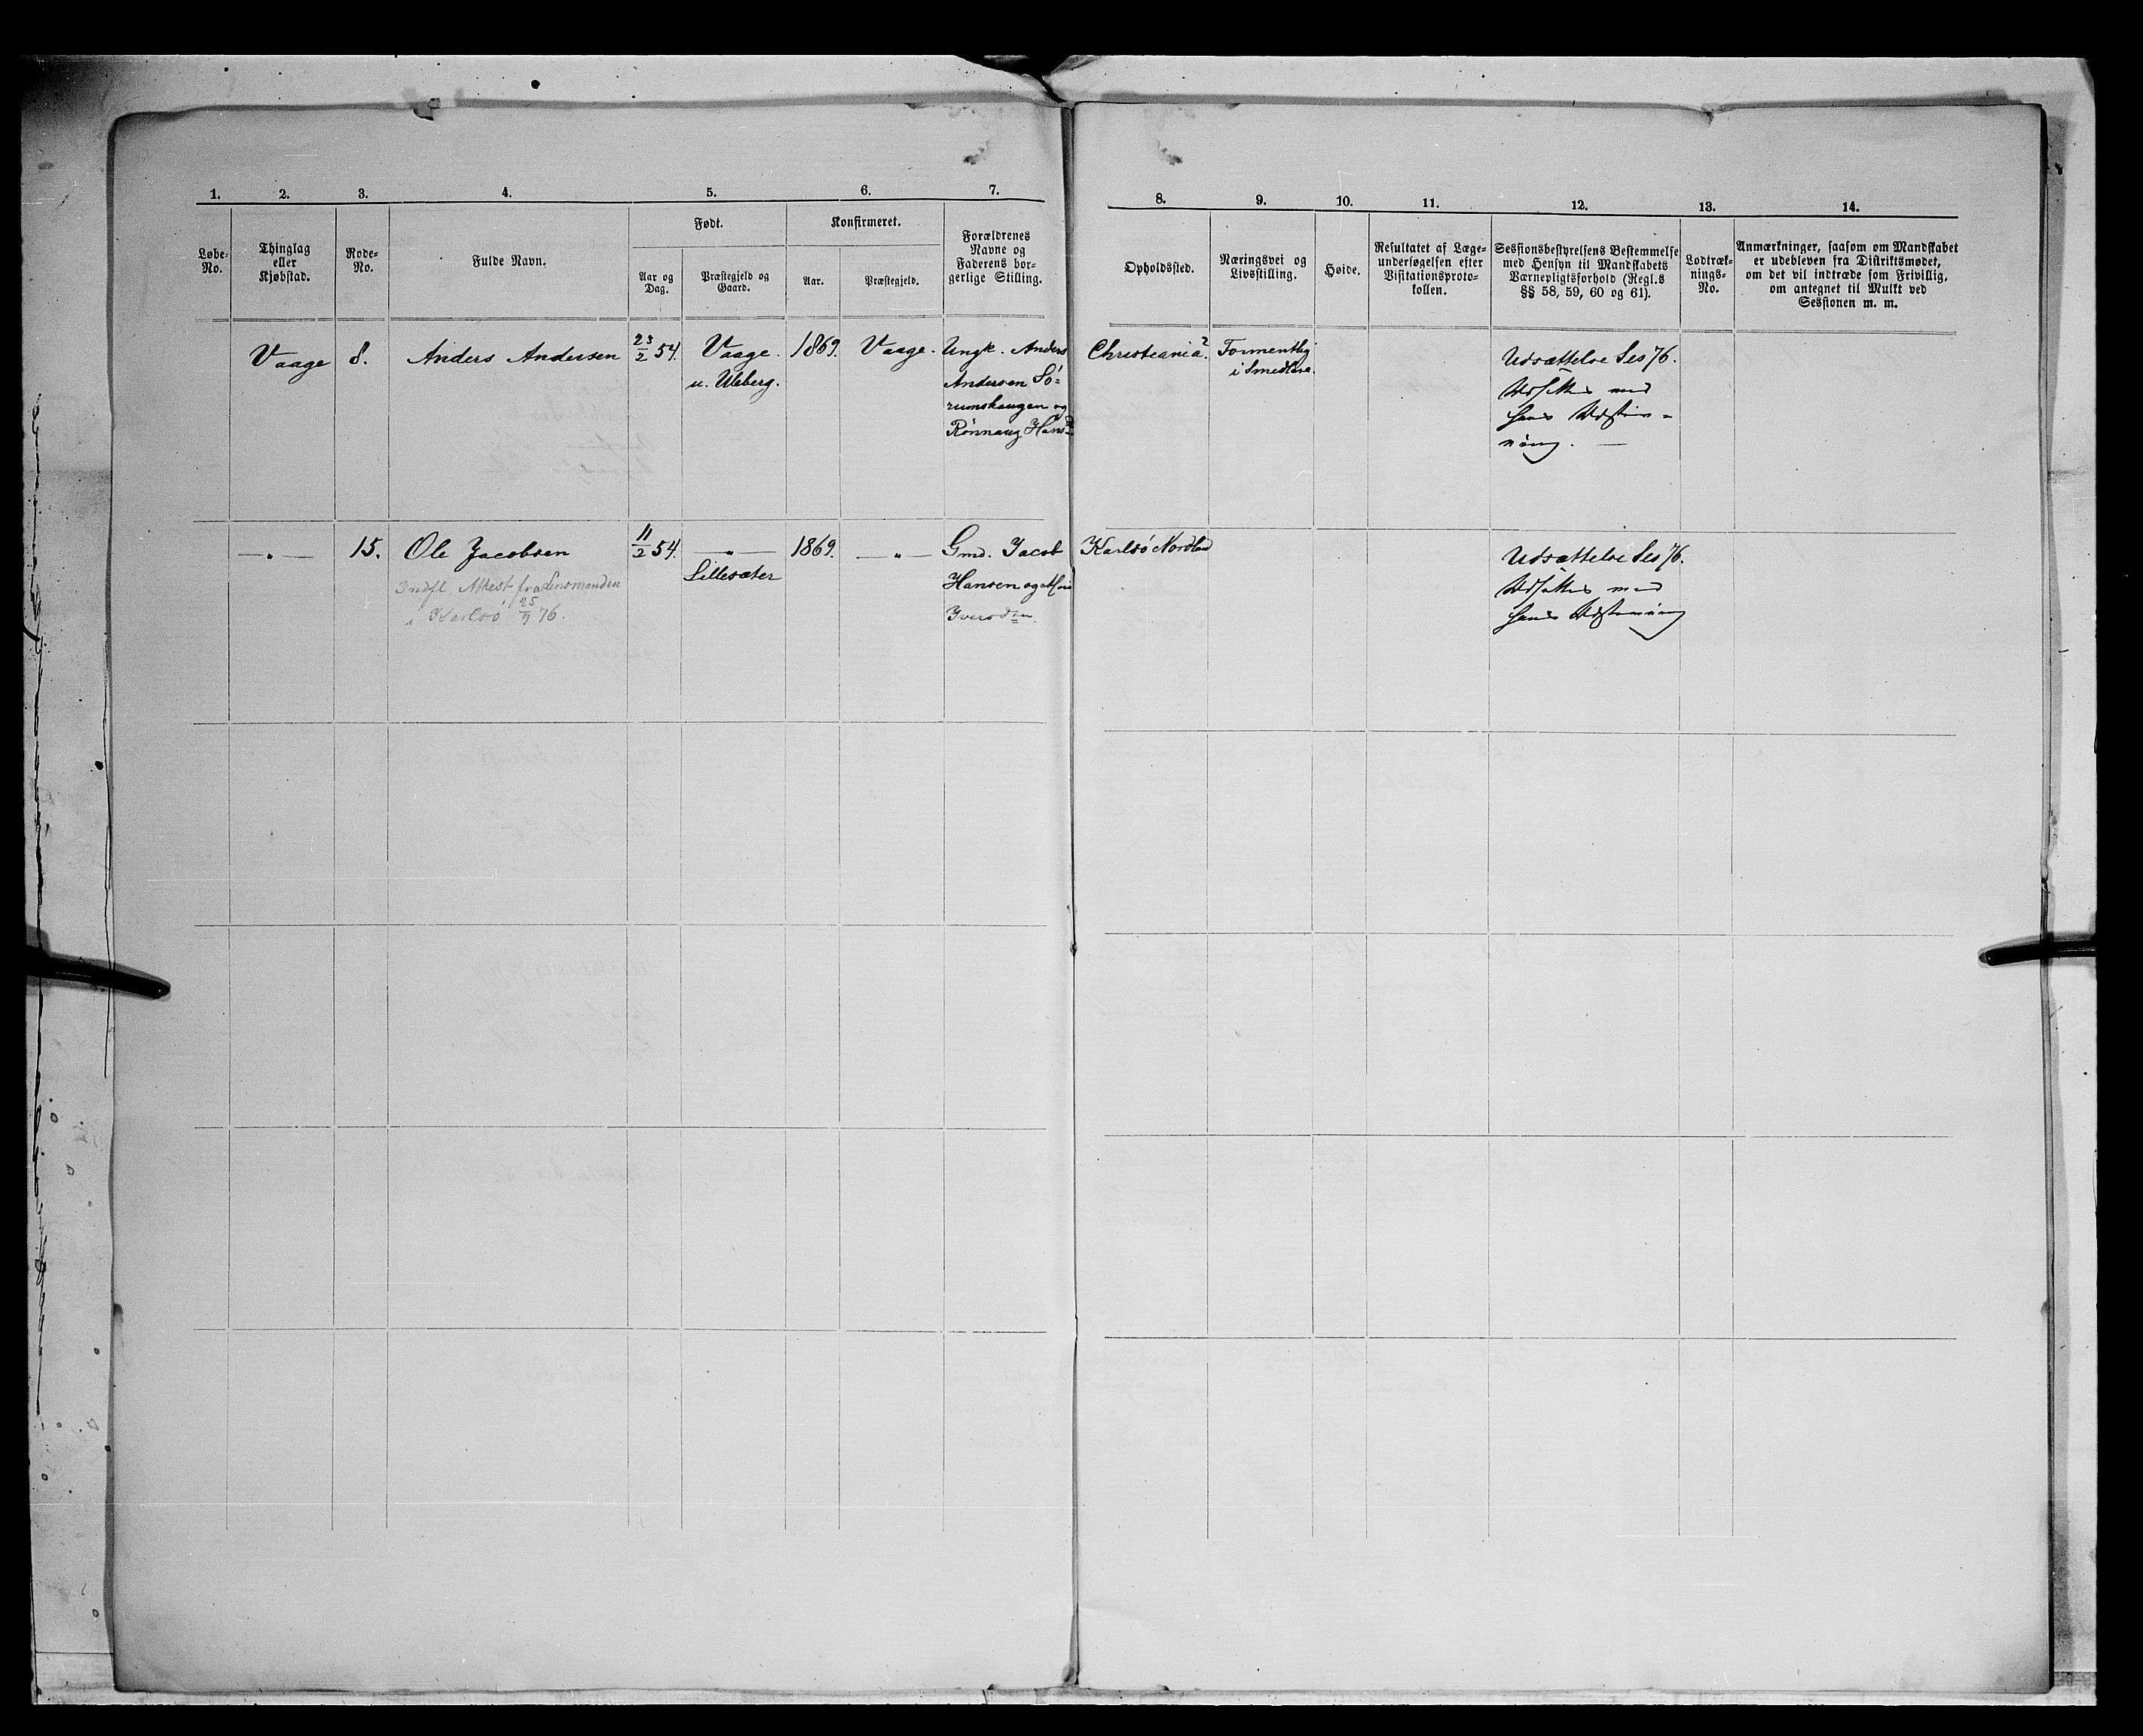 1. 2. 3. 4. 5. 6. 7. 8. 9. 10. 11. 12. 13. 14.
Løbe-
No.
Thinglag
eller
Kjøbstad.
Rode-
No.
Fulde Navn.
Født.
Aar og
Dag.
Præstegjeld og
Gaard.
Konfirmeret.
Aar.
Præstegjeld.
Forældrenes
Navne og
Faderens bor-
gerlige Stilling.
Opholdssted.
Næringsvei og
Livsstilling.
Høide.
Resultatet af Læge-
undersøgelsen efter
Visitationsproto-
kollen.
Sessionsbestyrelsens Bestemmelse
med Hensyn til Mandskabets
Værnepligtsforhold (Regl.s
§§ 58, 59, 60 og 61).
Lodtræk-
nings-
No.
Anmærkninger, saasom om Mandskabet
er udebleven fra Distriktsmødet,
om det vil indtræde som Frivillig,
om antegnet til Mulkt ved
Sessionen m. m.
Vaage
8.
Anders Andersen
23/2 54.
Vaage.
u. Uleberg.
1869.
Vaage.
Ungk. Anders
Andersen Sö-
rumshaugen og
Rönnaug Hansd
Christiania?
Formentlig
i Smedlære.
Udsættelse Ses 76.
Udsættes med
hans Udskriv-
ning. —
— " —
15.
Ole Jacobsen
11/2 54.
— " —
Lillesæter
1869.
— " —
Gmd. Jacob
Hansen og
Iversdtn.
Karlsö Nordland
Indfl. Attest fra Lensmanden
i Karlsö 25/9 76.
Udsættelse Ses 76.
Udsættes med
hans Udskrivning